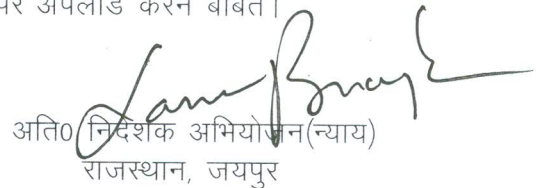 पर अपलोड करने बाबत।
अति0 निदेशक अभियोजन(न्याय)
राजस्थान, जयपुर